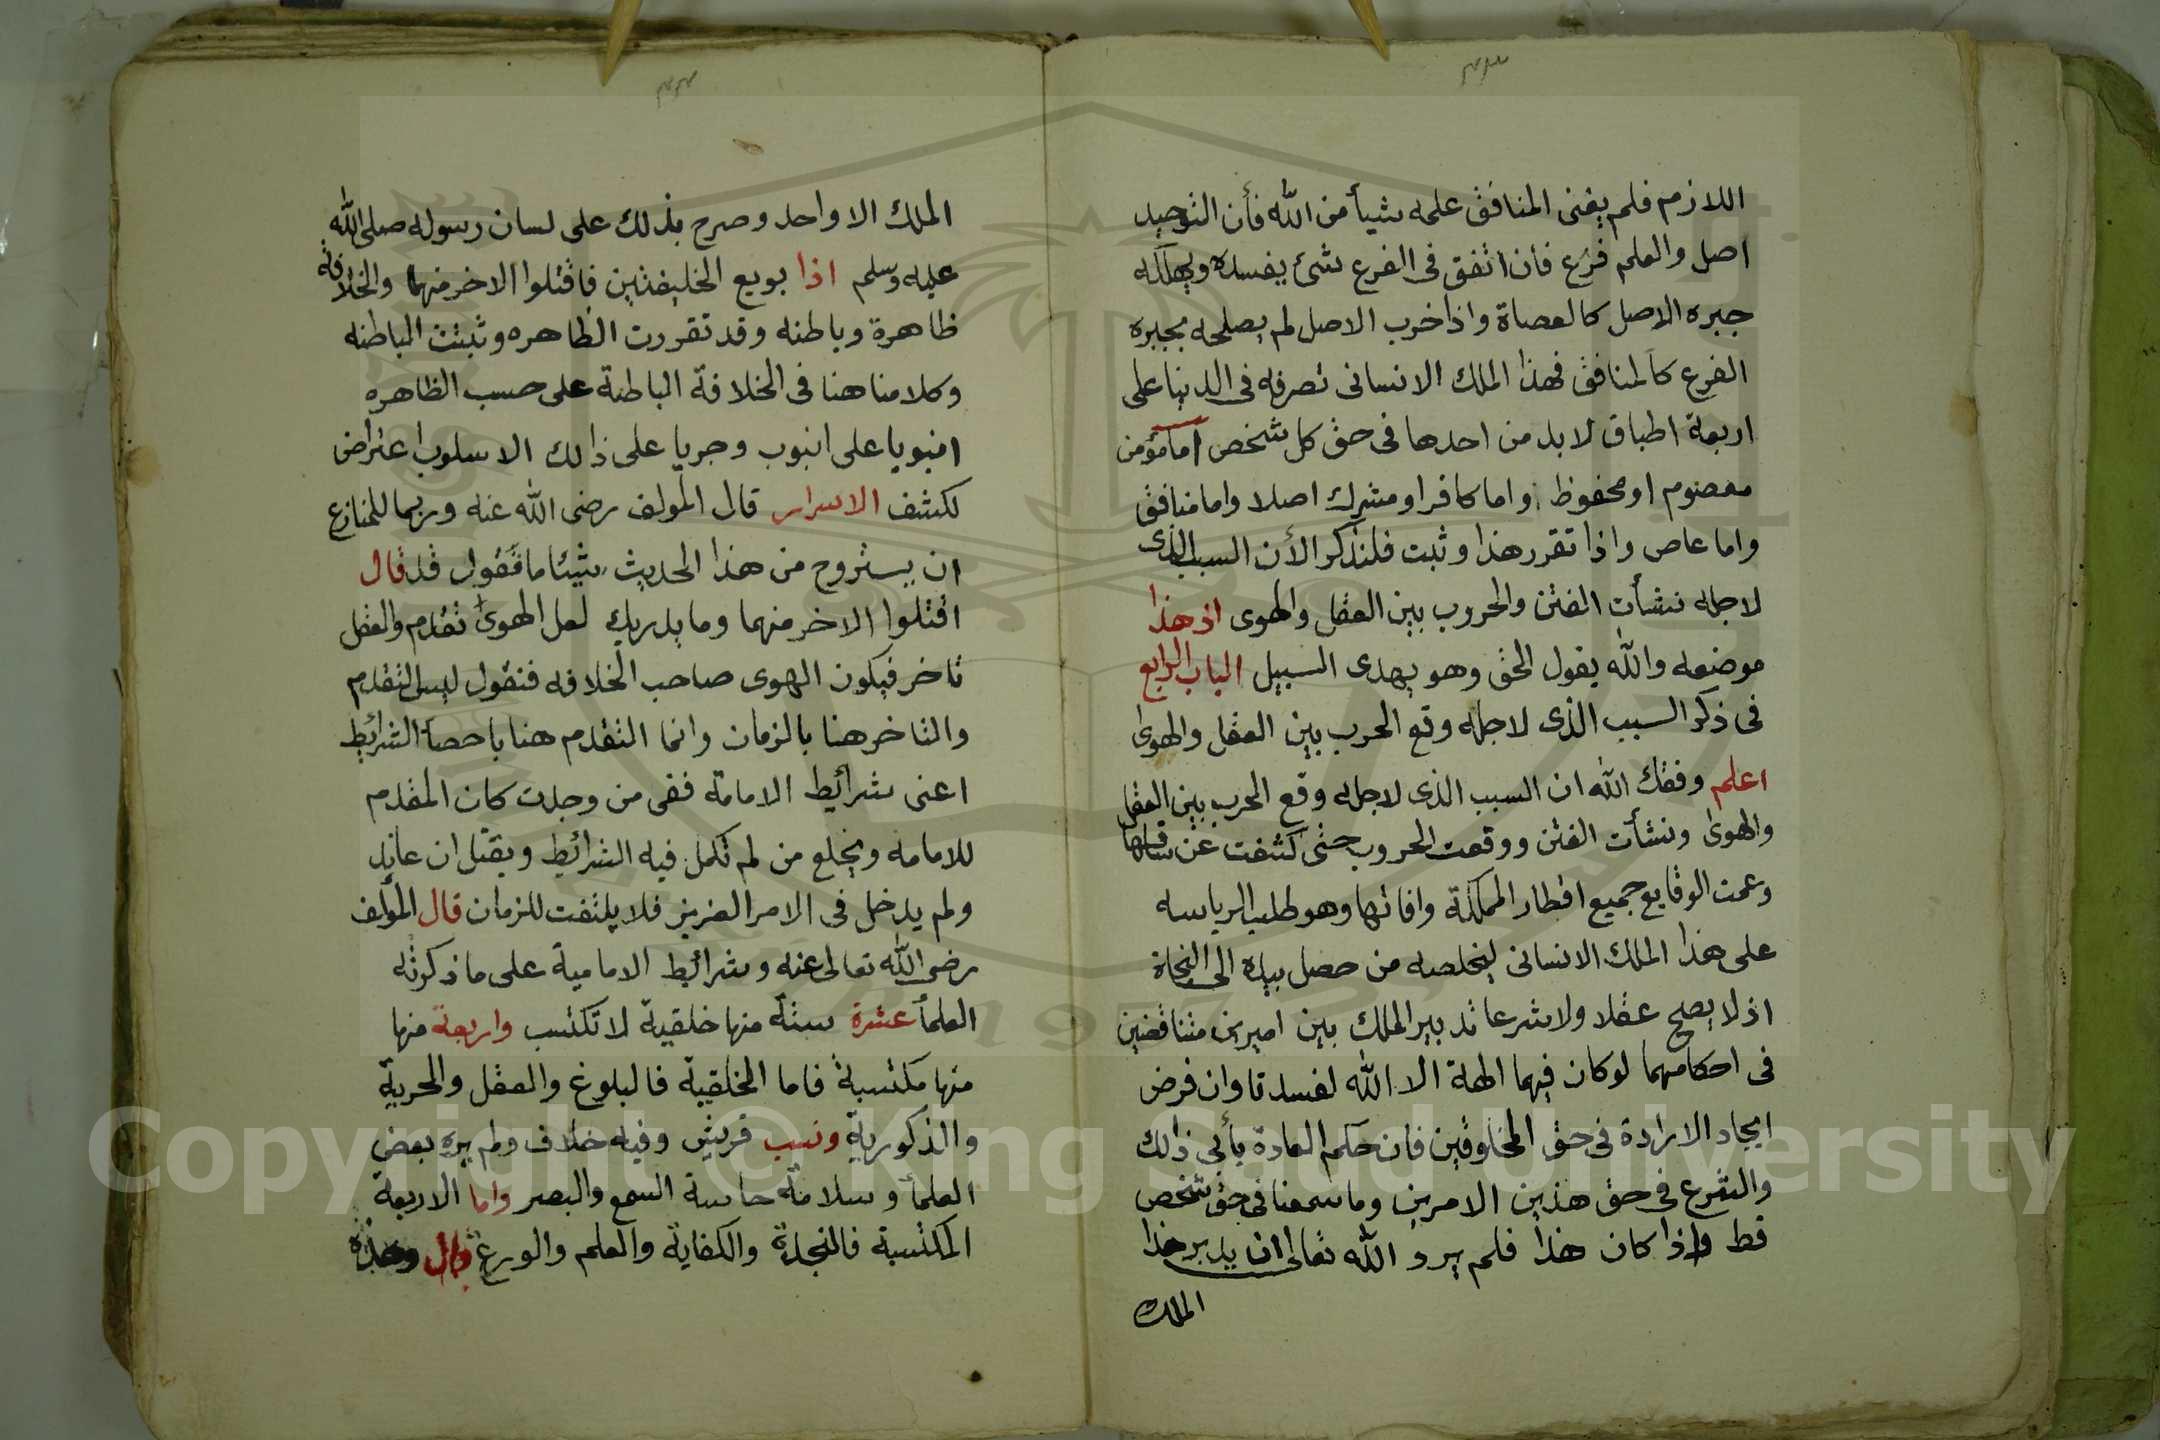 اللازم فلم يغنى المنافق علمه شيأ من الله فأن التوحيد
اصل والعلم فرع فان اتفق فى الفرع شئ يفسده ويهلكه
جبره الاصل كالعصاة واذا خرب الاصل لم يصلحه بجبره
الفرع كالمنافق فهذا الملك الانسانى تصرفه فى الدنيا على
اربعة اطباق لابد من احدها فى حق كل شخص امامؤمن
معصوم او محفوظ واما كافرا ومشرك اصلا واما منافق
واما عاص واذا تقرر هذا وثبت فلنذكر الأن السبب الذى
لاجله نشأت الفتن والحروب بين العقل والهوى اذ هذا
موضعه والله يقول الحق وهو يهدى السبيل الباب الرابع
فى ذكر السبب الذى لاجله وقع الحرب بين العقل والهوى
اعلم وفقك الله ان السبب الذى لاجله وقع الحرب بين العقل
والهوى ونشأت الفتن ووقعت الحروب حتى كشفت عن ساقها
وعمت الوقايع جميع اقطار المملكة وافاتها وهو طلب الرياسه
على هذا الملك الانسانى ليخلصه من حصل بيده الى النجاة
اذ لا يصح عقلا ولا شرعا تدبير الملك بين اميرين متناقضين
فى احكامهما لو كان فيهما الهة الا الله لفسدتا وان فرض
ايجاد الارادة فى حق المخلوقين فان حكم العادة يأبى ذالك
والشرع فى حق هذين الامرين وما سمعنا فى حق شخص
قط واذا كان هذا فلم يرد الله تعالى ان يدبر هذا
الملك
الملك الا واحد وصرح بذلك على لسان رسوله صلى الله
عليه وسلم اذا بويع الخليفتين فاقتلوا الاخر منهما والخلافة
ظاهرة وباطنه وقد تقررت الظاهره وثبتت الباطنه
وكلامنا هنا فى الخلافة الباطنة على حسب الظاهره
انبوبا على انبوب وجريا على ذالك الاسلوب اعتراض
لكشف الاسرار قال المولف رضى الله عنه وربما للمنازع
ان يستروح من هذا الحديث شيئا ما فنقول قد قال
اقتلوا الاخر منهما وما يدريك لعل الهوى تقدم والعقل
تاخر فيكون الهوى صاحب الخلافه فنقول ليس التقدم
والتاخر هنا بالزمان وانما التقدم هنا باحصآ الشرائط
اعنى شرائط الامامة ففى من وجدت كان المقدم
للامامه ويخلع من لم تكمل فيه الشرائط ويقتل ان عاند
ولم يدخل فى الامر العزيز فلا يلتفت للزمان قال المؤلف
رضى الله تعالى عنه وشرائط الامامية على ما ذكرته
العلمأ عشرة ستة منها خلقية لا تكتسب واربعة منها
منها مكتسبة فاما الخلقية فالبلوغ والعقل والحرية
والذكورية ونسب قريش وفيه خلاف ولم يره بعض
العلمأ وسلامة حاسة السمع والبصر واما الاربعة
المكتسبة فالنجدة والكفاية والعلم والورع قال وهذه
Copyright © King Saud University